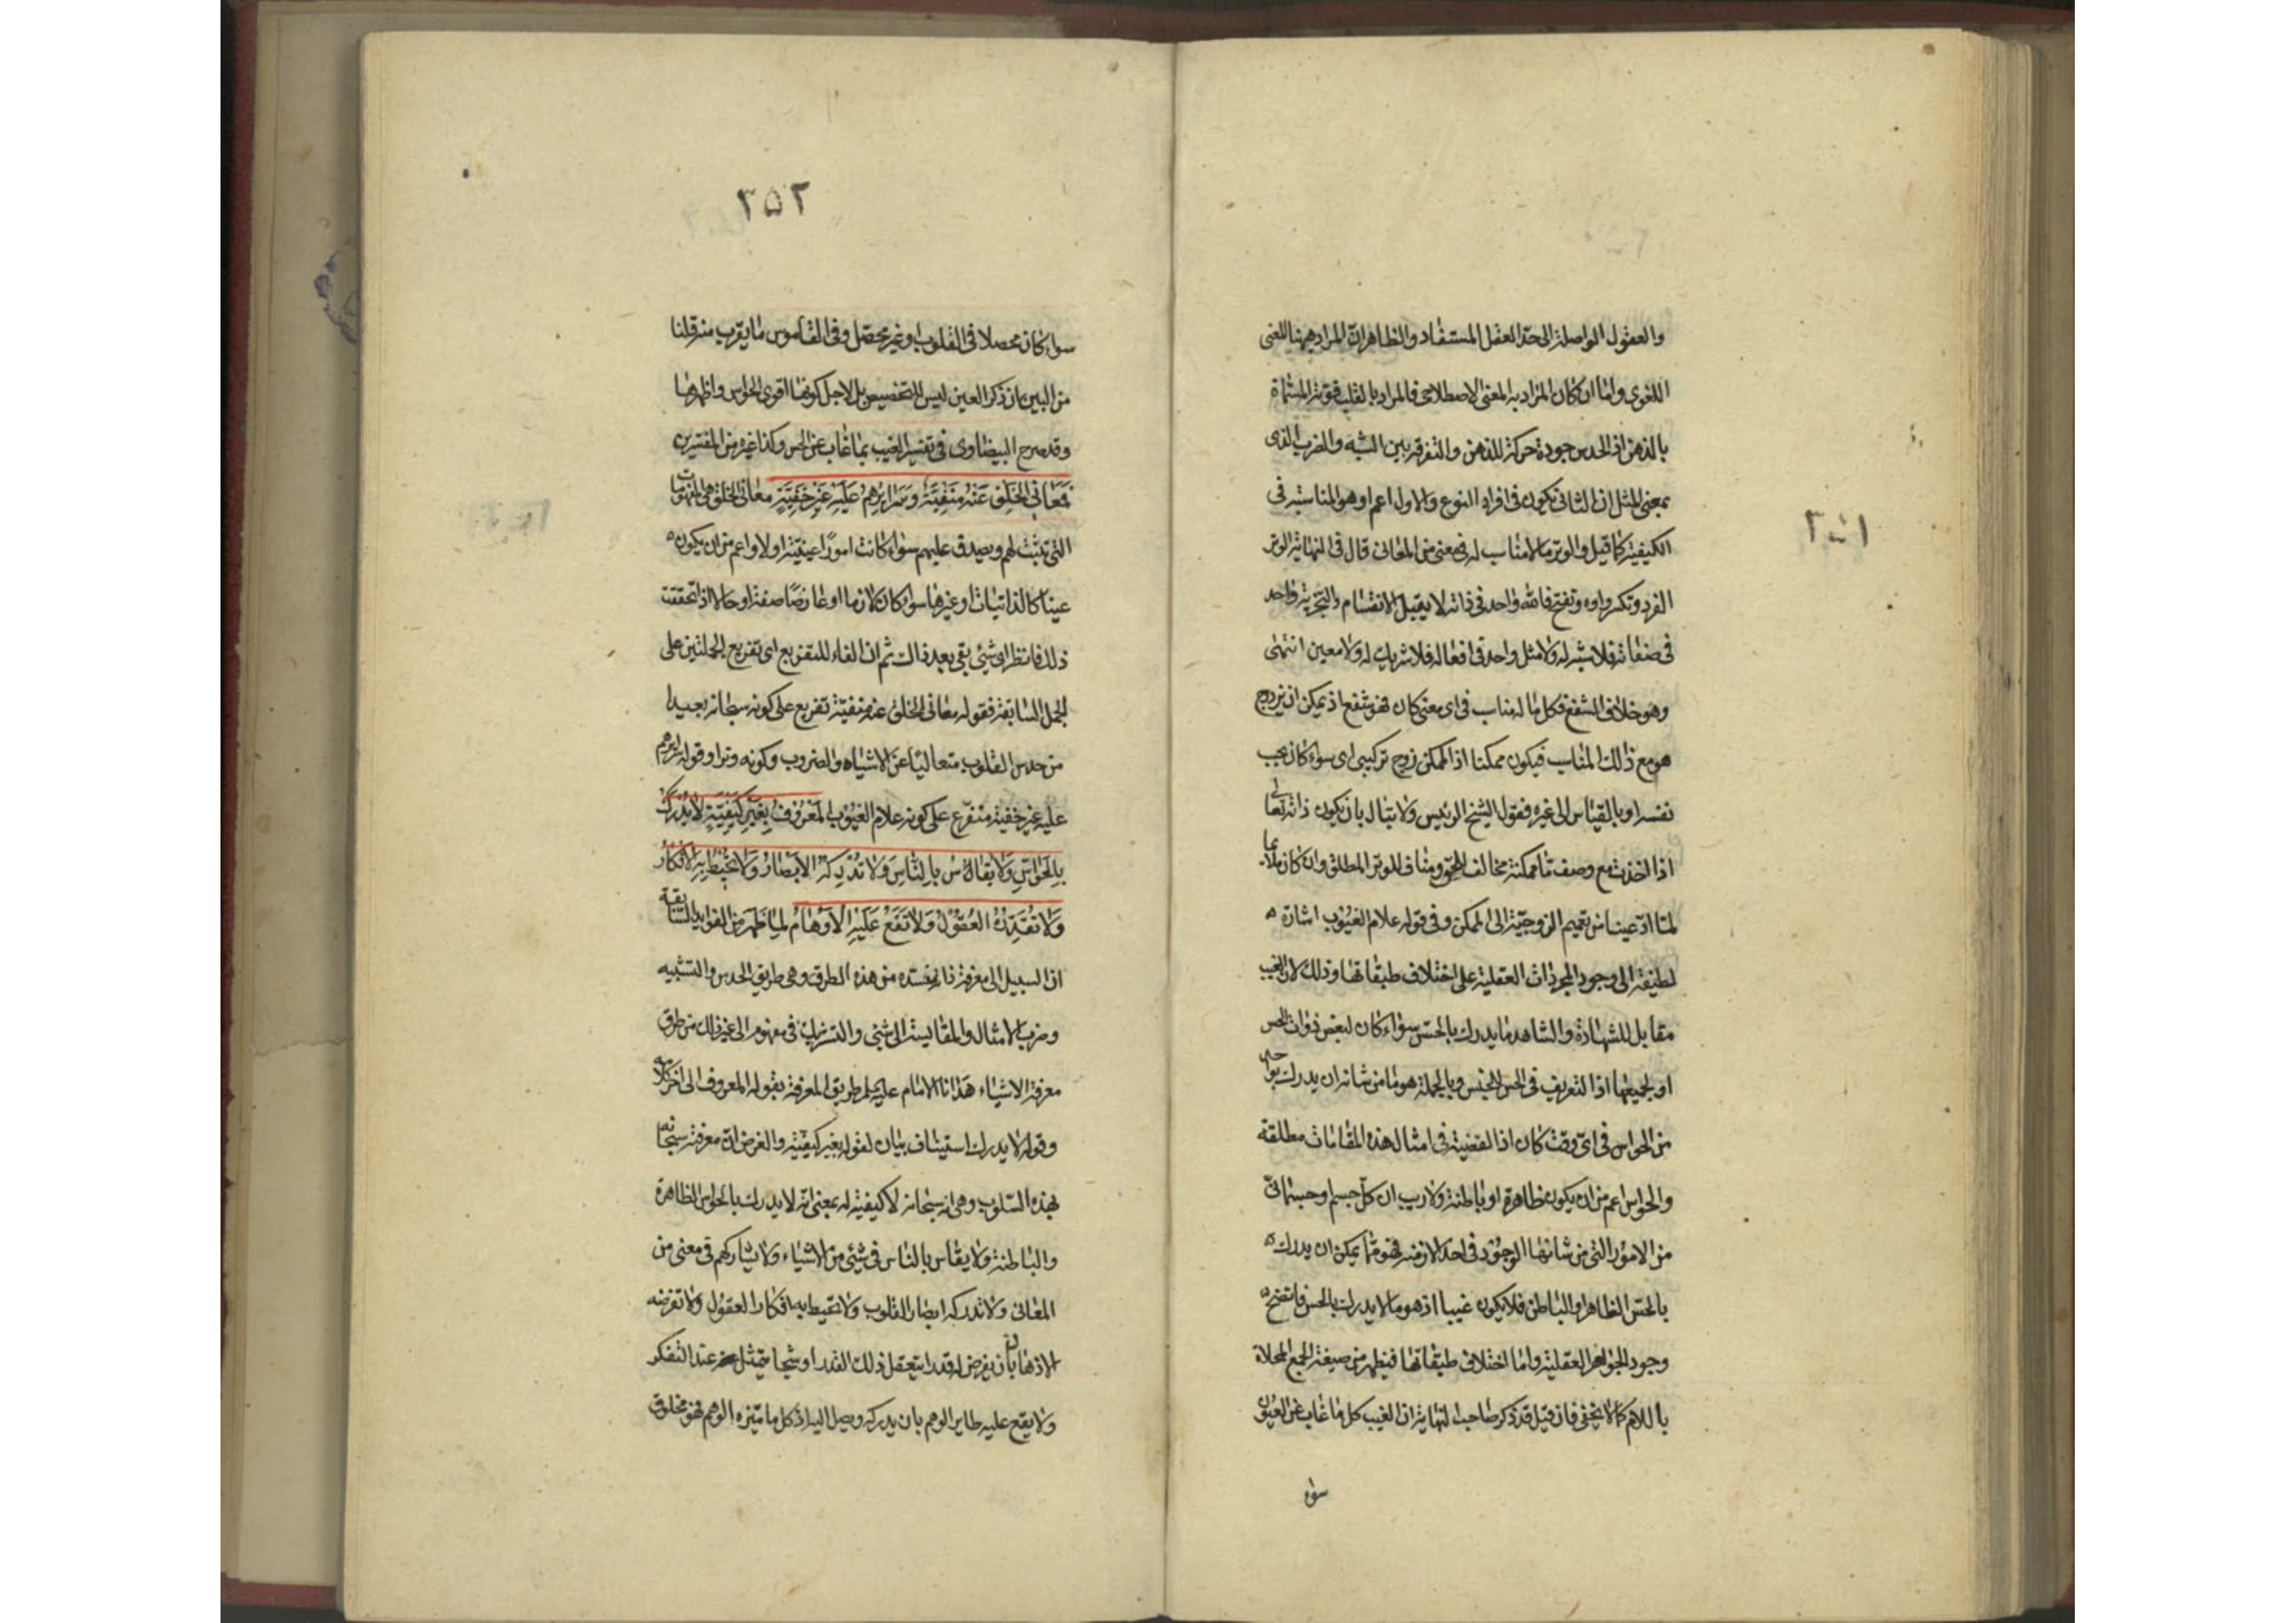 ٣٥١
والعقول الواصلة الى حدّ العقل المستفاد والظاهر انّ المراد ههنا المعنى
اللغوى واما ان كان المراد به المعنى الاصطلاحى فالمراد بالقلب قوته المسمّاة
بالذهن اذ الحدس جودة حركة للذهن والتفرقة بين الشبه والضرب الذى
بمعنى المثل ان الثانى يكون فى افراد النوع والاول اعم او هو المناسبة فى
الكيفية كما قيل والوتر ما لا مناسب له فى معنى من المعانى قال فى النهاية الوتر
الفرد وتكسر واوه وتفتح فالله واحد فى ذاته لا يقبل الانقسام والتجزية واحد
فى صفاته فلا شبه له ولا مثل واحد فى افعاله فلا شريك له ولا معين انتهى
وهو خلاف الشفع فكل ما له مناسب فى اى معنى كان فهو شفع اذ يمكن ان يزدوج
هو مع ذلك المناسب فيكون ممكنا اذ الممكن زوج تركيبى اى سواء كان بحسب
نفسه او بالقياس الى غيره فقول الشيخ الرئيس ولا يبال بان يكون ذاته تعالى
اذا اخذت مع وصف ما ممكنة مخالف للحق ومناف للوتر المطلق وان كان ملائما
لما ادّعيناه من تعميم الزوجيّة الى الممكن وفى قوله علام الغيوب اشارة
لطيفة الى وجود المجردات العقلية على اختلاف طبقاتها وذلك لان الغيب
مقابل للشهادة والشاهد ما يدرك بالحسّ سواء كان لبعض ذوات الحس
او لجميعها اذ التعريف فى الحس للجنس وبالجملة هو ما من شانه ان يدرك بواحد
من الحواس فى اىّ وقت كان اذ القضية فى امثال هذه المقامات مطلقة
والحواس اعم من ان يكون ظاهرة او باطنة ولا ريب ان كلّ جسم او جسمانىّ
من الامور التى من شانها الوجود فى احد الازمنة فهو ممّا يمكن ان يدرك
بالحسّ الظاهر او الباطن فلا يكون غيبا اذ هو ما لا يدرك بالحس فاتضح
وجود الجواهر العقلية واما اختلاف طبقاتها فيظهر من صيغة الجمع المحلاة
باللام كما لا يخفى فان قيل قد ذكر صاحب النهاية ان الغيب كل ما غاب عن العيون
سواء
٣٥٢
سواء كان محصلا فى القلوب او غير محصّل وفى القاموس ما يقرب منه قلنا
من البين ان ذكر العين ليس للتخصيص بل لاجل كونها اقوى الحواس واظهرها
وقد صرح البيضاوى فى تفسير الغيب بما غاب عن الحس وكذا غيره من المفسّرين
فَمَعَانِي الخَلْقِ عَنْهُ مَنْفِيَّةٌ وَسَرَايِرُهُمْ عَلَيْهِ غَيْرُ خَفِيَّةٍ معانى الخلق هى المفهومات
التى تثبت لهم ويصدق عليهم سواء كانت امورًا عينيّة او لا واعم من ان يكون
عينا كالذاتيات او غيرها سواء كان لازما او عارضًا صفة او حالا اذا تحققت
ذلك فانظر اى شئ بقى بعد ذلك ثم ان الفاء للتفريع اى تفريع الجملتين على
الجمل السابقة فقوله معانى الخلق عنه منفيّة تفريع على كونه سبحانه بعيدا
من حدس القلوب متعاليًا عن الاشباه والضروب وكونه وترا وقوله سرايرهم
عليه غير خفية متفرع على كونه علام الغيوب المَعْرُوفُ بِغَيْرِ كَيْفِيَّةٍ لا يُدْرَكُ
بِالحَوَاسِّ وَلا يُقَاسُ بِالنَّاسِ وَلا تُدْرِكُهُ الأَبْصَارُ وَلا تُحِيطُ بِهِ الأَفْكَارُ
وَلا تُقَدِّرُهُ العُقُولُ وَلا تَقَعُ عَلَيْهِ الأَوْهَامُ لما ظهر من الفوايد السابقة
ان السبيل الى معرفة ذاته منسدّه من هذه الطرق وهى طريق الحدس والتشبيه
وضرب الامثال والمقايسة الى شئ والتشريك فى مفهوم الى غير ذلك من طرق
معرفة الاشياء هدانا الامام عليه طريق المعرفة بقوله المعروف الى اخر كلامه
وقوله لا يدرك استيناف بيان لقوله بغير كيفية والغرض انّ معرفته سبحانه
بهذه السلوب وهى انه سبحانه لا كيفية له بمعنى انه لا يدرك بالحواس الظاهرة
والباطنة ولا يقاس بالناس فى شئ من الاشياء ولا يشاركهم فى معنى من
المعانى ولا تدركه ابصار القلوب ولا تحيط به افكار العقول ولا تفرضه
الاذهان بان يفرض له قدرا يتعقل ذلك القدر او شبحا يتمثل عند التفكر
ولا يقع عليه طاير الوهم بان يدركه ويصل اليه اذ كل ما ميّزه الوهم فهو مخلوق